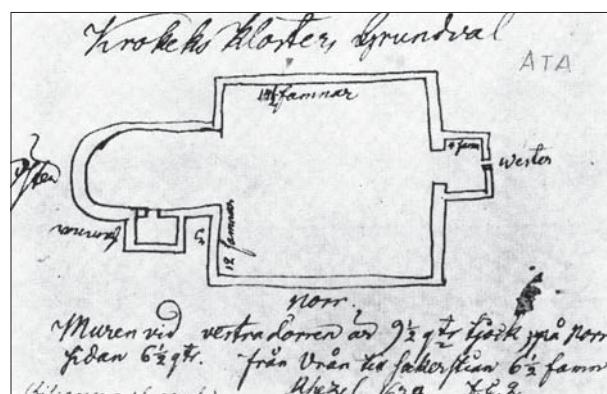 Krokeks Kloster, Grundval
ATA
famnar
Östen
4 fam
wester
12 famnar
5
norr.
Muren vid vestra dörren är 9½ qtr tjock, på norr
sidan 6½ qtr. från Vrån till sakerstian 6½ famn